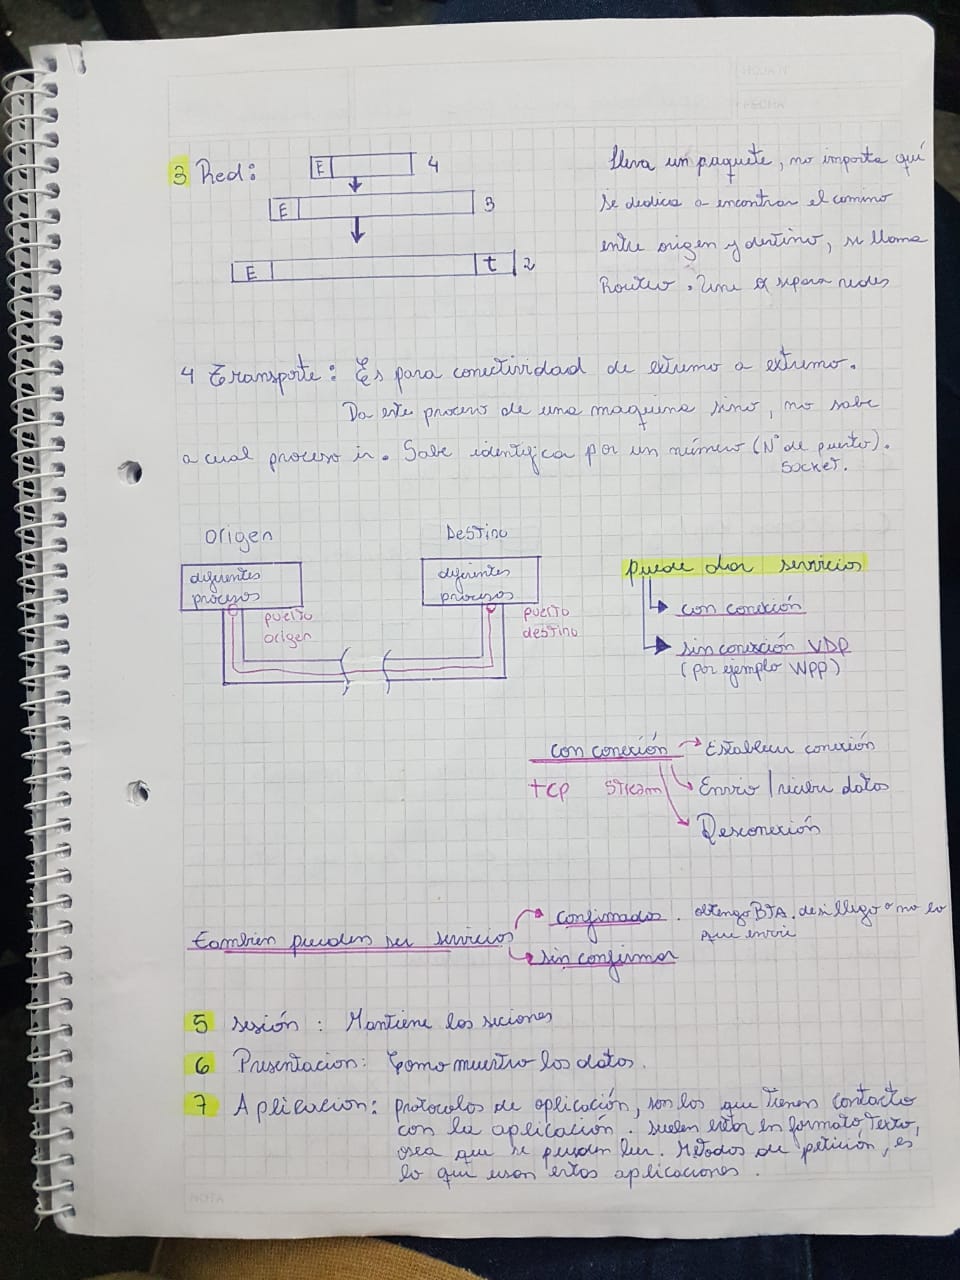 3 Red:
E 4
E 3
E t 2
lleva un paquete, no importa qué
se dedica a encontrar el camino
entre origen y destino, se llama
Router. Une o separa redes
4 Transporte: Es para conectividad de extremo a extremo.
Da este proceso de una maquina sino, no sabe
a cual proceso ir. Sabe identifica por un número (N° de puerto).
socket.
origen
Destino
diferentes
procesos
diferentes
procesos
puerto
origen
puerto
destino
puede dar servicios
con conexión
sin conexión UDP
(por ejemplo WPP)
con conexión
Establecer conexión
tcp stream
Envio/recibir datos
Desconexión
tambien pueden ser servicios
confirmados. obtengo RTA. de si llego o no lo
que envié
sin confirmar
5 sesión: Mantiene las seciones
6 Presentacion: Como muestro los datos.
7 Aplicacion: protocolos de aplicación, son los que tienen contacto
con la aplicación. suelen estar en formato texto,
osea que se pueden leer. Métodos de petición, es
lo que usan estas aplicaciones.